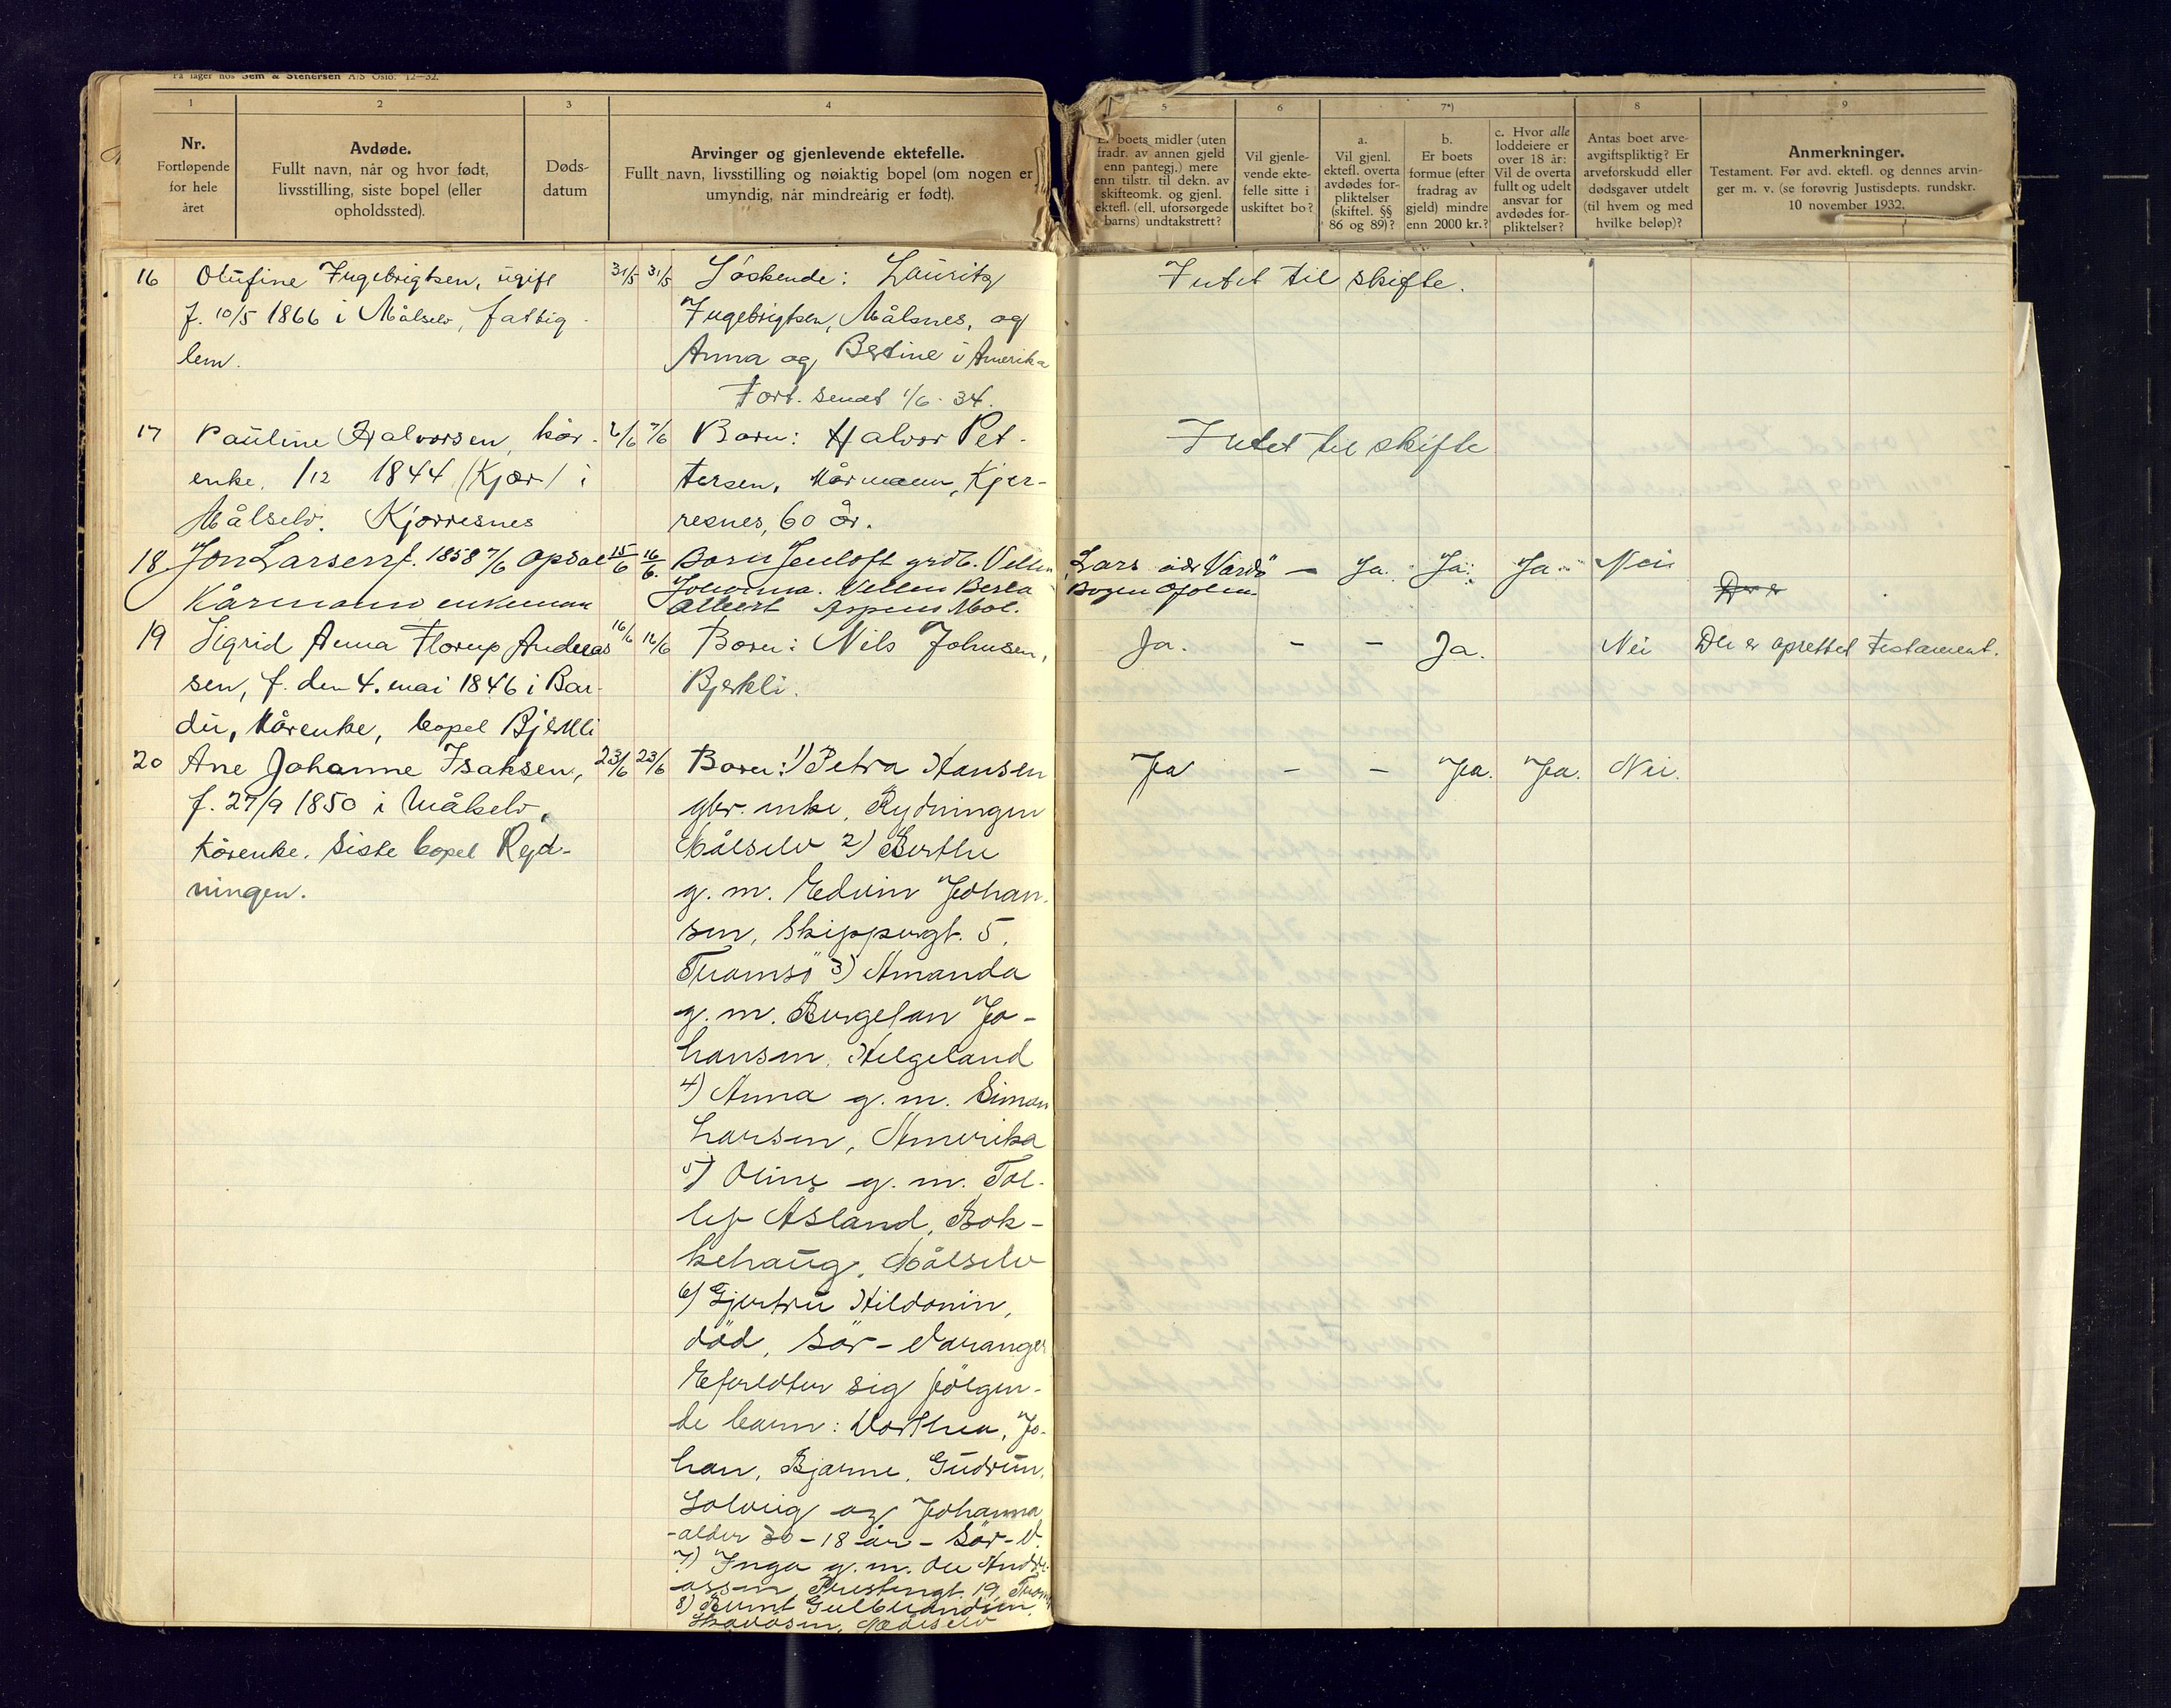 På lager hos Sem & Stenersen A/S Oslo. 12—32.
1
2
3
4
Nr.
Fortløpende
for hele
året
Avdøde.
Fullt navn, når og hvor født,
livsstilling, siste bopel (eller
opholdssted).
Døds-
datum
Arvinger og gjenlevende ektefelle.
Fullt navn, livsstilling og nøiaktig bopel (om nogen er
umyndig, når mindreårig er født).
5
6
7*)
8
9
boets midler (uten
fradr. av annen gjeld
enn pantegj.) mere
enn tilstr. til dekn. av
skifteomk. og gjenl.
ektefl. (ell. uforsørgede
barns) undtakstrett?
Vil gjenle-
vende ekte-
felle sitte i
uskiftet bo?
a.
Vil gjenl.
ektefl. overta
avdødes for-
pliktelser
(skiftel. §§
86 og 89)?
b.
Er boets
formue (efter
fradrag av
gjeld) mindre
enn 2000 kr.?
c. Hvor alle
loddeiere er
over 18 år:
Vil de overta
fullt og udelt
ansvar for
avdødes for-
pliktelser?
Antas boet arve-
avgiftspliktig? Er
arveforskudd eller
dødsgaver utdelt
(til hvem og med
hvilke beløp)?
Anmerkninger.
Testament. Før avd. ektefl. og dennes arvin-
ger m. v. (se forøvrig Justisdepts. rundskr.
10 november 1932.
16 Olufine Ingebrigtsen, ugift 31/5 31/5 Søskende: Lauritz
f. 10/5 1866 i Målselv, fattig- Ingebrigtsen, Målsnes, og
lem. Anna og Bertine i Amerika
Fort. sendt 1/6. 34.
Intet til skifte.
17 Pauline Halvorsen, kår- 2/6 7/6 Born: Halvor Pet-
enke, /12 1844 (Kjær) i tersen, kårmann, Kjer-
Målselv. Kjerresnes resnes, 60 år.
Intet til skifte
18 Jon Larsen f. 1858 7/6 Opdal 15/6 16/6 Born Jenloft grdb. Vellen
Kårmann enkeman Johanna. Vellen Berta
Albert Aspenes Mol.
Lars Vardö — Ja. Ja. Ja. Nei
Bogen Ofoten
19 Sigrid Anna Florup Andreas 16/6 16/6 Born: Nils Johnsen,
sen, f. den 4. mai 1846 i Bar- Bjerkli.
du, kårenke, bopel Bjerkli
Ja. - - Ja. Nei Der er oprettet testament.
20 Ane Johanne Isaksen, 23/6 23/6 Born: 1) Petra Hansen
f. 27/9 1850 i Målselv, gbr. enke, Rydningen
kårenke. Siste bopel Ryd- Målselv 2) Berthe
ningen. g. m. Edvin Johan-
Ja - - Ja. Ja. Nei.
sen, Skippergt. 5,
Tromsö 3) Amanda
g. m. Bergeton Jo-
hansen, Helgeland
4) Anna g. m. Simon
Larsen, Amerika
5) Oline g. m. Tol-
lef Asland, Bok-
kehaug, Målselv
6) Gjertru Hildonin,
död, Sör-Varanger
Efterlater sig fölgen-
de barn: Dorthea, Jo-
han, Bjarne, Gudrun,
Solveig og Johanna
-alder 30-18 år - Sör-V.
7) Inga g. m. Ole Andre-
assen, Prestengt. 19, Tromsö
8) Bernt Gulbrandsen,
Målselv